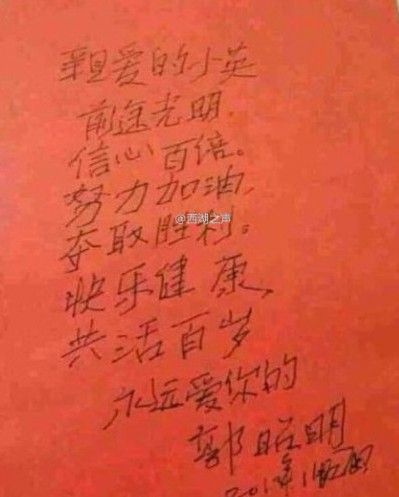 亲爱的小英
前途光明.
信心百倍。
努力加油,
@西湖之声
夺取胜利。
快乐健康,
共活百岁
永远爱你的
郭昭明